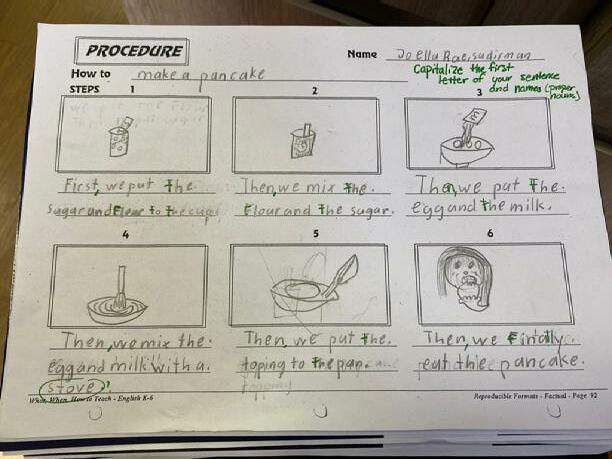 PROCEDURE
Name Joella Rae, sudirman
How to make a pancake
Capitalize the first
letter of your sentence
and names (proper
nouns)
STEPS 1
2
3
First, we put the
sugar and Flour to the cup.
Then, we mix the.
Flour and the sugar.
Then, we put the.
egg and the milk.
4
5
6
Then, we mix the.
egg and milk with a.
stove.
Then, we put the.
toping to the pan.
Then, we Finally.
eat the pancake.
What, When, How to Teach - English K-6
Reproducible Formats - Factual - Page 92